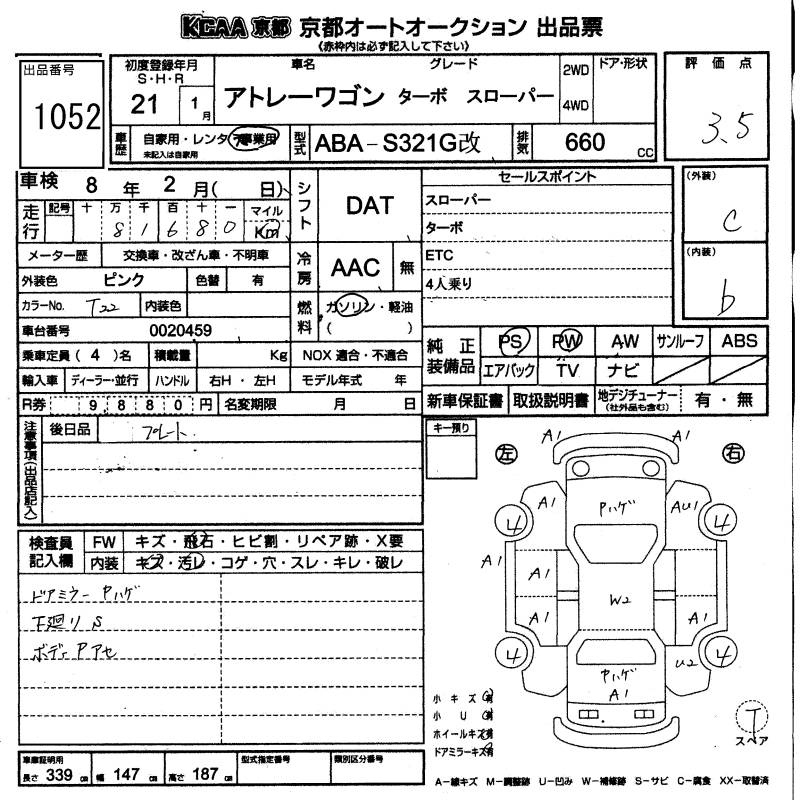 KCAA 京都 京都オートオークション 出品票
《赤枠内は必ず記入して下さい》
出品番号
1052
初度登録年月
S・H・R
21 1月
車名 グレード
アトレーワゴン ターボ スローパー
2WD
4WD
ドア・形状
評価点
3.5
車歴 自家用・レンタ・事業用
未記入は自家用
型式 ABA－S321G改
排気 660 cc
車検 8年 2月( 日)
走行 記号 十 万 千 百 十 一 マイル
8 1 6 8 0 Km
メーター歴 交換車・改ざん車・不明車
外装色 ピンク 色替 有
カラーNo. T22 内装色
車台番号 0020459
乗車定員( 4 )名 積載量 Kg
輸入車 ディーラー・並行 ハンドル 右H・左H
R券 9,880円 名変期限 月 日
シフト DAT
冷房 AAC 無
燃料 ガソリン・軽油
( )
NOX 適合・不適合
モデル年式 年
セールスポイント
スローパー
ターボ
ETC
4人乗り
(外装)
C
(内装)
b
純正装備品 PS PW AW サンルーフ ABS
エアバック TV ナビ
新車保証書 取扱説明書 地デジチューナー
(社外品も含む) 有・無
注意事項(出品店記入)
後日品 プレート
検査員記入欄 FW キズ・飛石・ヒビ割・リペア跡・X要
内装 キズ・汚レ・コゲ・穴・スレ・キレ・破レ
ドアミラー Pハゲ
下廻り S
ボディPアセ
キー預り
左 右
A1 A1
A1 Pハゲ AU1
4 4
A1 A1
W2
A1 A1
4 4
Pハゲ U2
A1
小キズ有
小U有
ホイールキズ有
ドアミラーキズ有
T
スペア
車庫証明用
長さ 339 cm 幅 147 cm 高さ 187 cm
型式指定番号
類別区分番号
A－線キズ M－調整跡 U－凹み W－補修跡 S－サビ C－腐食 XX－取替済